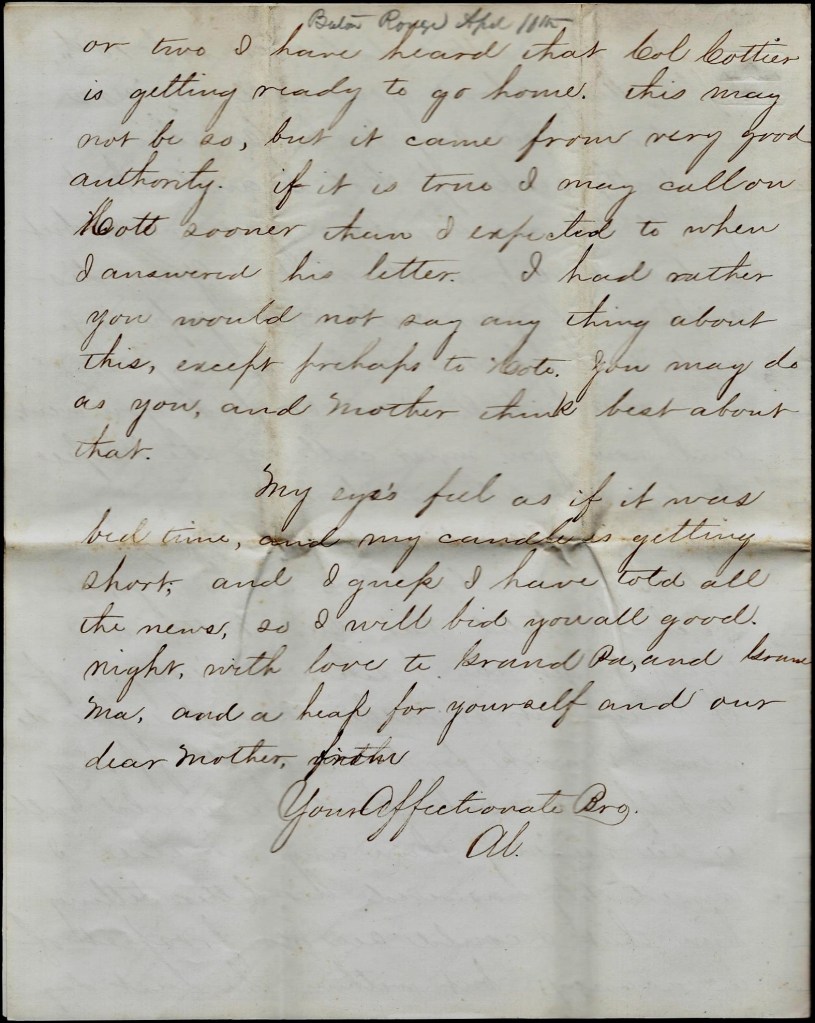 Baton Rouge Apl 10th
or two I have heard that Col Cottier
is getting ready to go home. this may
not be so, but it came from very good
authority. if it is true I may call on
sooner then I expected to when
I answered his letter. I had rather
you would not say any thing about
this, except prehaps to You may do
as you, and Mother think best about
that.
My eye's feel as if it was
bed time, and my candle is getting
short, and I guess I have told all
the news, so I will bid you all good.
night, with love to Grand Pa, and Grand
Ma, and a heap for yourself and our
dear Mother,
Your Affectionate Bro.
Al.